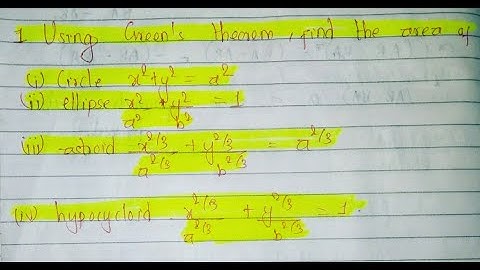 1 Using Green's theorem, find the area of
(i) Circle x² + y² = a²
(ii) ellipse x²/a² + y²/b² = 1
(iii) astroid x^2/3/a^2/3 + y^2/3/b^2/3 = a^2/3
(iv) hypocycloid x^2/3/a^2/3 + y^2/3/b^2/3 = 1.